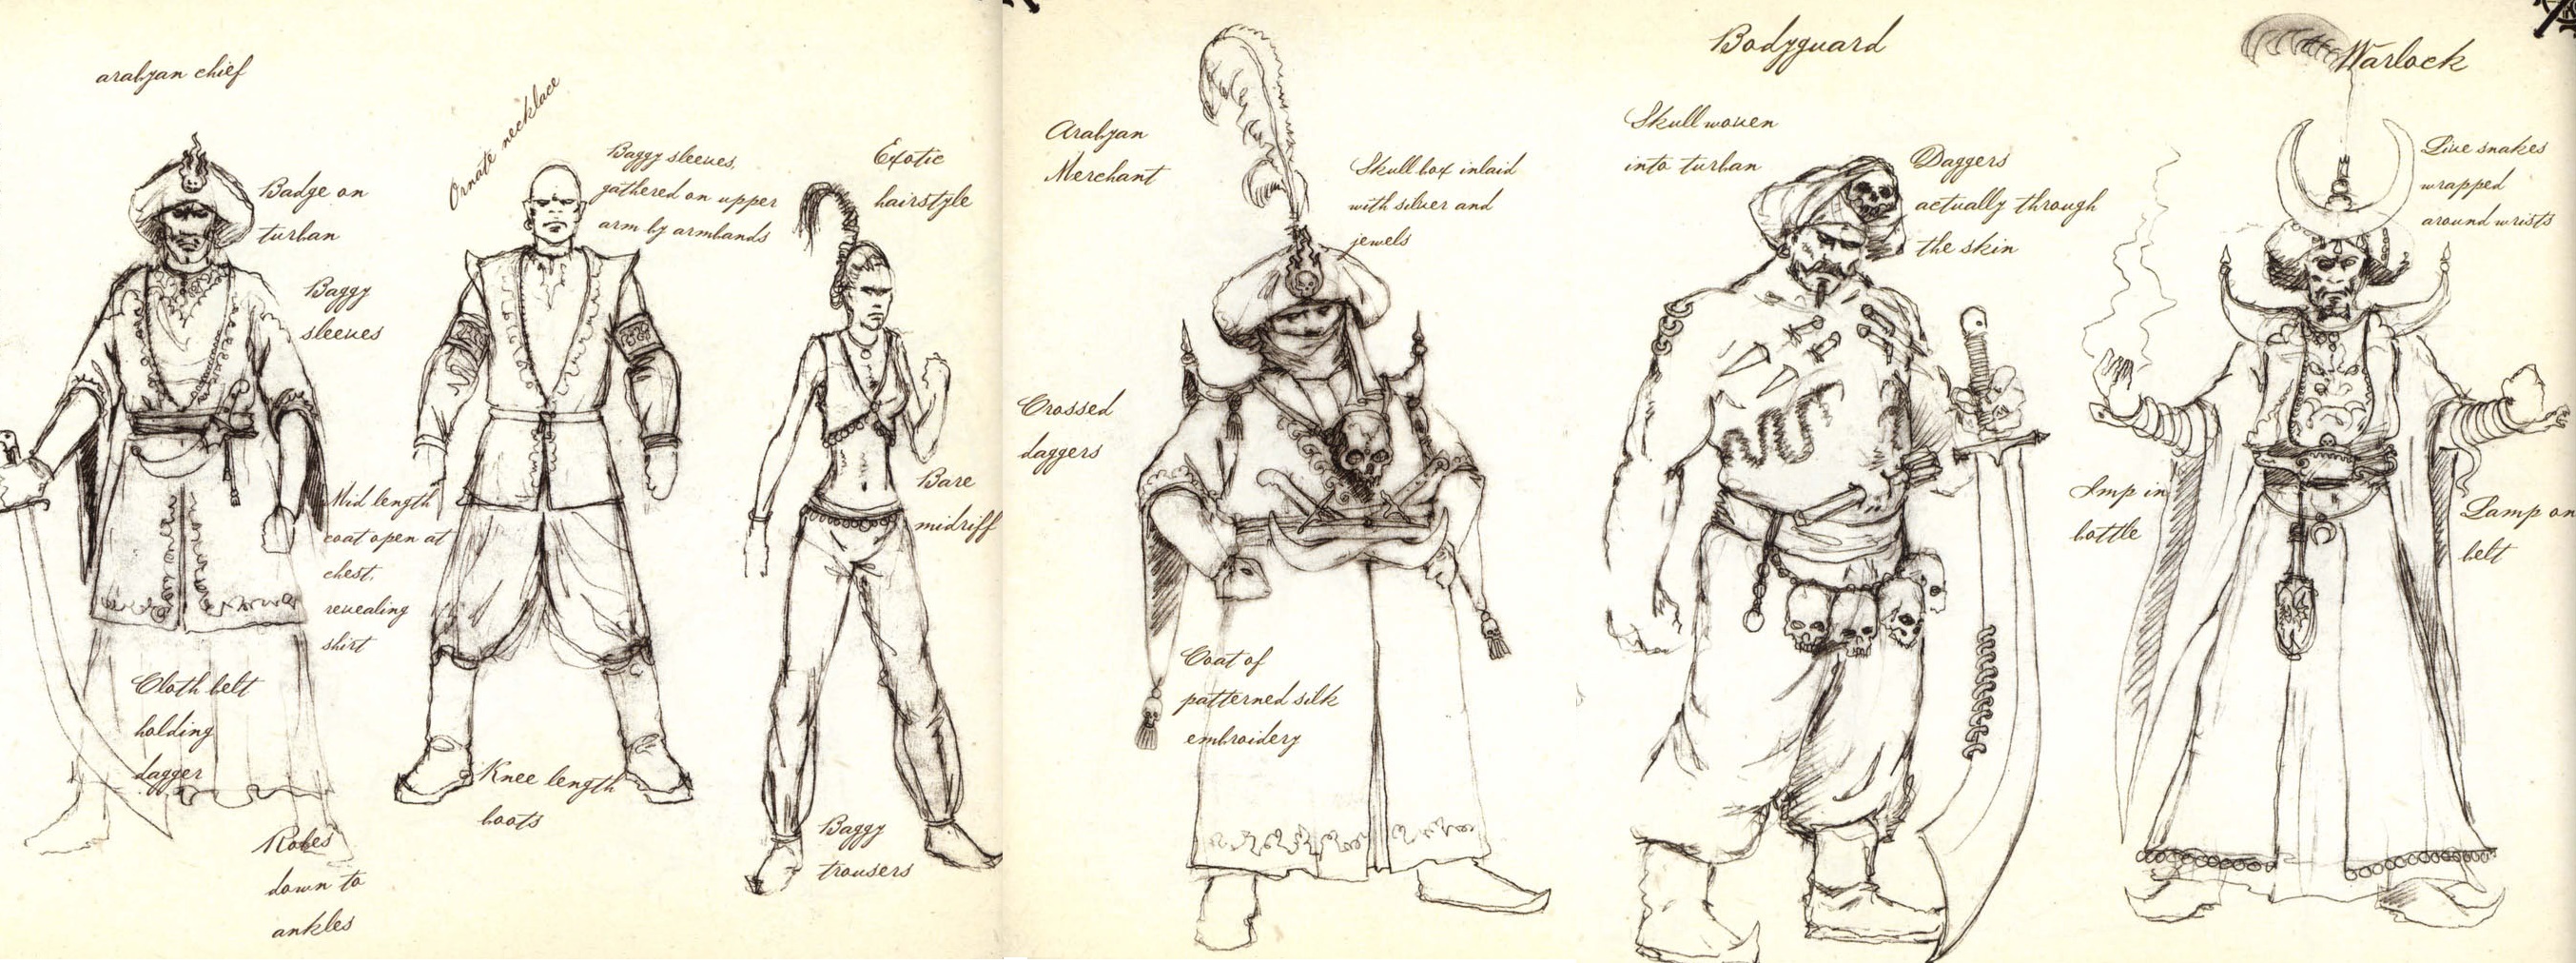 arabyan chief
Ornate necklace
Badge on
turban
Baggy
sleeves
Mid length
coat open at
chest,
revealing
shirt
Cloth belt
holding
dagger
Robes
down to
ankles
Baggy sleeves,
gathered on upper
arm by armbands
Knee length
boots
Exotic
hairstyle
Bare
midriff
Baggy
trousers
Arabyan
Merchant
Skull box inlaid
with silver and
jewels
Crossed
daggers
Coat of
patterned silk
embroidery
Bodyguard
Skull woven
into turban
Daggers
actually through
the skin
Warlock
Live snakes
wrapped
around wrists
Imp in
bottle
Lamp on
belt